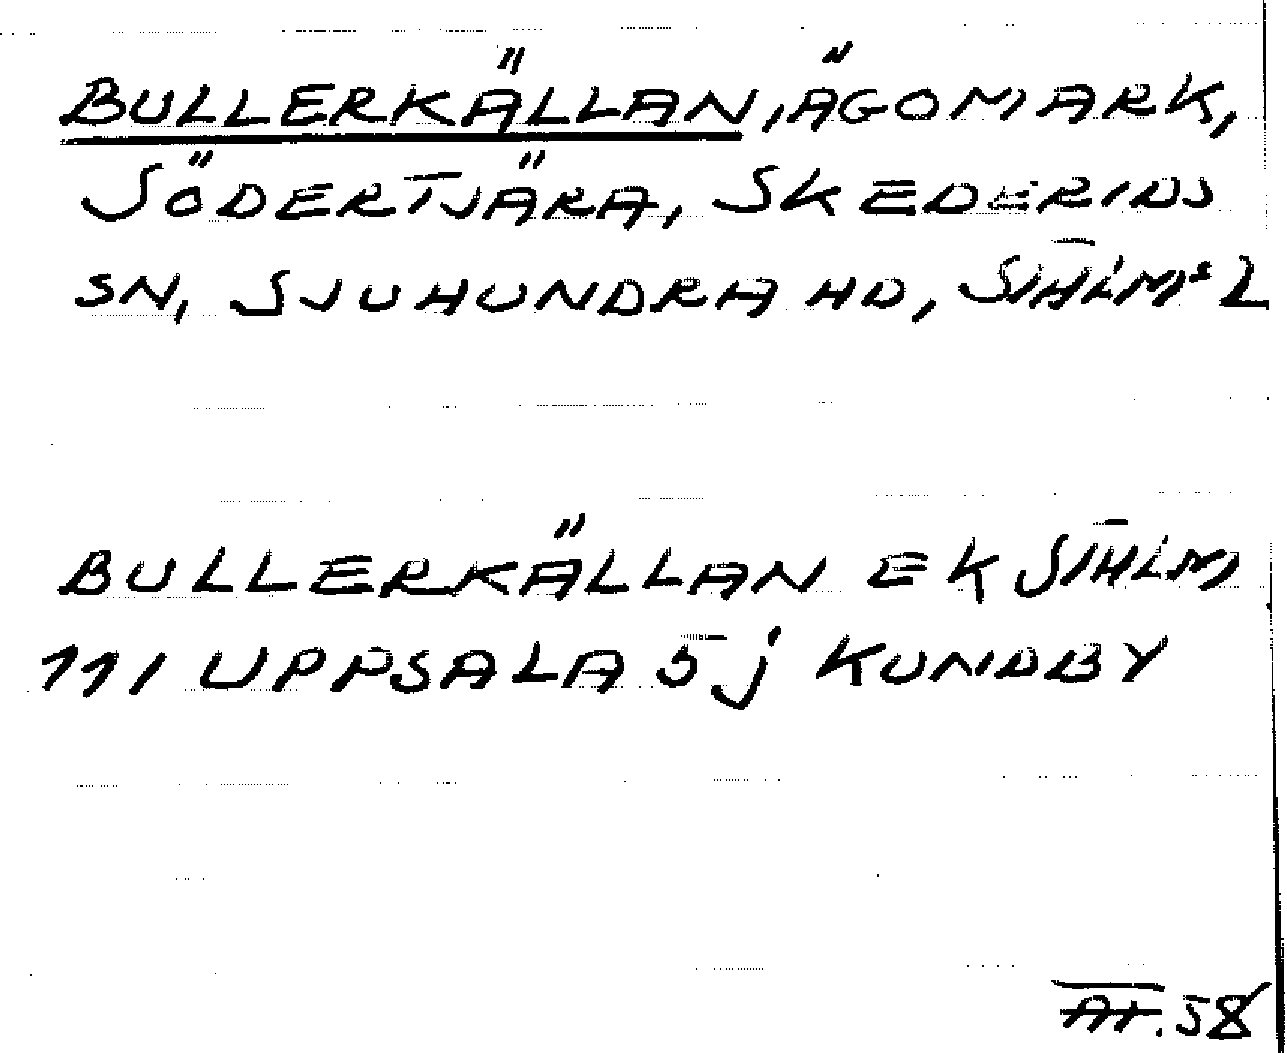 BULLERKÄLLAN, ÄGOMARK,
SÖDERTJÄRA, SKEDERIDS
SN, SJUHUNDRA HD, STHLMS L
BULLERKÄLLAN EK STHLM
111 UPPSALA 5 j KUNDBY
58